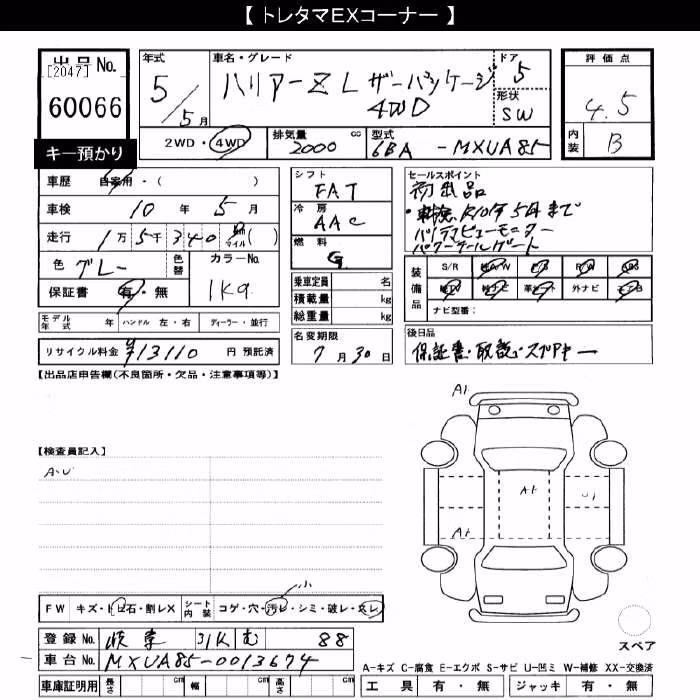 【 トレタマEXコーナー 】
出品No.
[2047]
60066
キー預かり
年式
5/5月
車名・グレード
ハリアーZ L ザーパッケージ
4WD
ドア
5
形状
SW
評価点
4.5
内装
B
2WD・4WD
排気量
2000 cc
型式
6BA-MXUA85
車歴 自家用・( )
車検 10年5月
走行 1万5千340 km マイル( )
色 グレー
色替
カラーNo.
1K9
保証書 有・無
モデル年式 年 ハンドル 左・右 ディーラー・並行
リサイクル料金 ¥13110 円 預託済
シフト
FAT
冷房
AAC
燃料
G
乗車定員 名
積載量 kg
総重量 kg
名変期限
7月30日
セールスポイント
初出品
・車検R10年5月まで
パノラマビューモニター
パワーテールゲート
装備品
S/R 純A/W P/S P/W ABS
純TV 純ナビ 革シート 外ナビ エアB
ナビ型番:
後日品
保証書・取説・スペアキー
【出品店申告欄(不良箇所・欠品・注意事項等)】
【検査員記入】
A・U
A1
A1
U1
A1
FW キズ・トビ石・割レX
シート内装 コゲ・穴・汚レ・シミ・破レ・灰レ
小
登録No. 岐阜 31K む 88
車台No. MXUA85-0013674
車庫証明用 長さ cm 幅 cm 高さ cm
スペア
A-キズ C-腐食 E-エクボ S-サビ U-凹ミ W-補修 XX-交換済
工具 有・無 ジャッキ 有・無